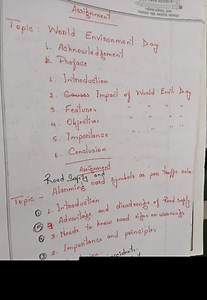 Assignment
Topic: World Environment Day
1. Acknowledgement
2. Preface
1. Introduction
2. Causes Impact of World Envit Day
3. Features " " "
4. Objectives " " "
5. Importance " " "
6. Conclusion
Assignment
Road Safety and
Alarming road symbols as per traffic rules
Topic -
1. Introduction
2. Advantage and disadvantage of Road safety
3. Needs to know road signs or warnings
2. Importance and principles